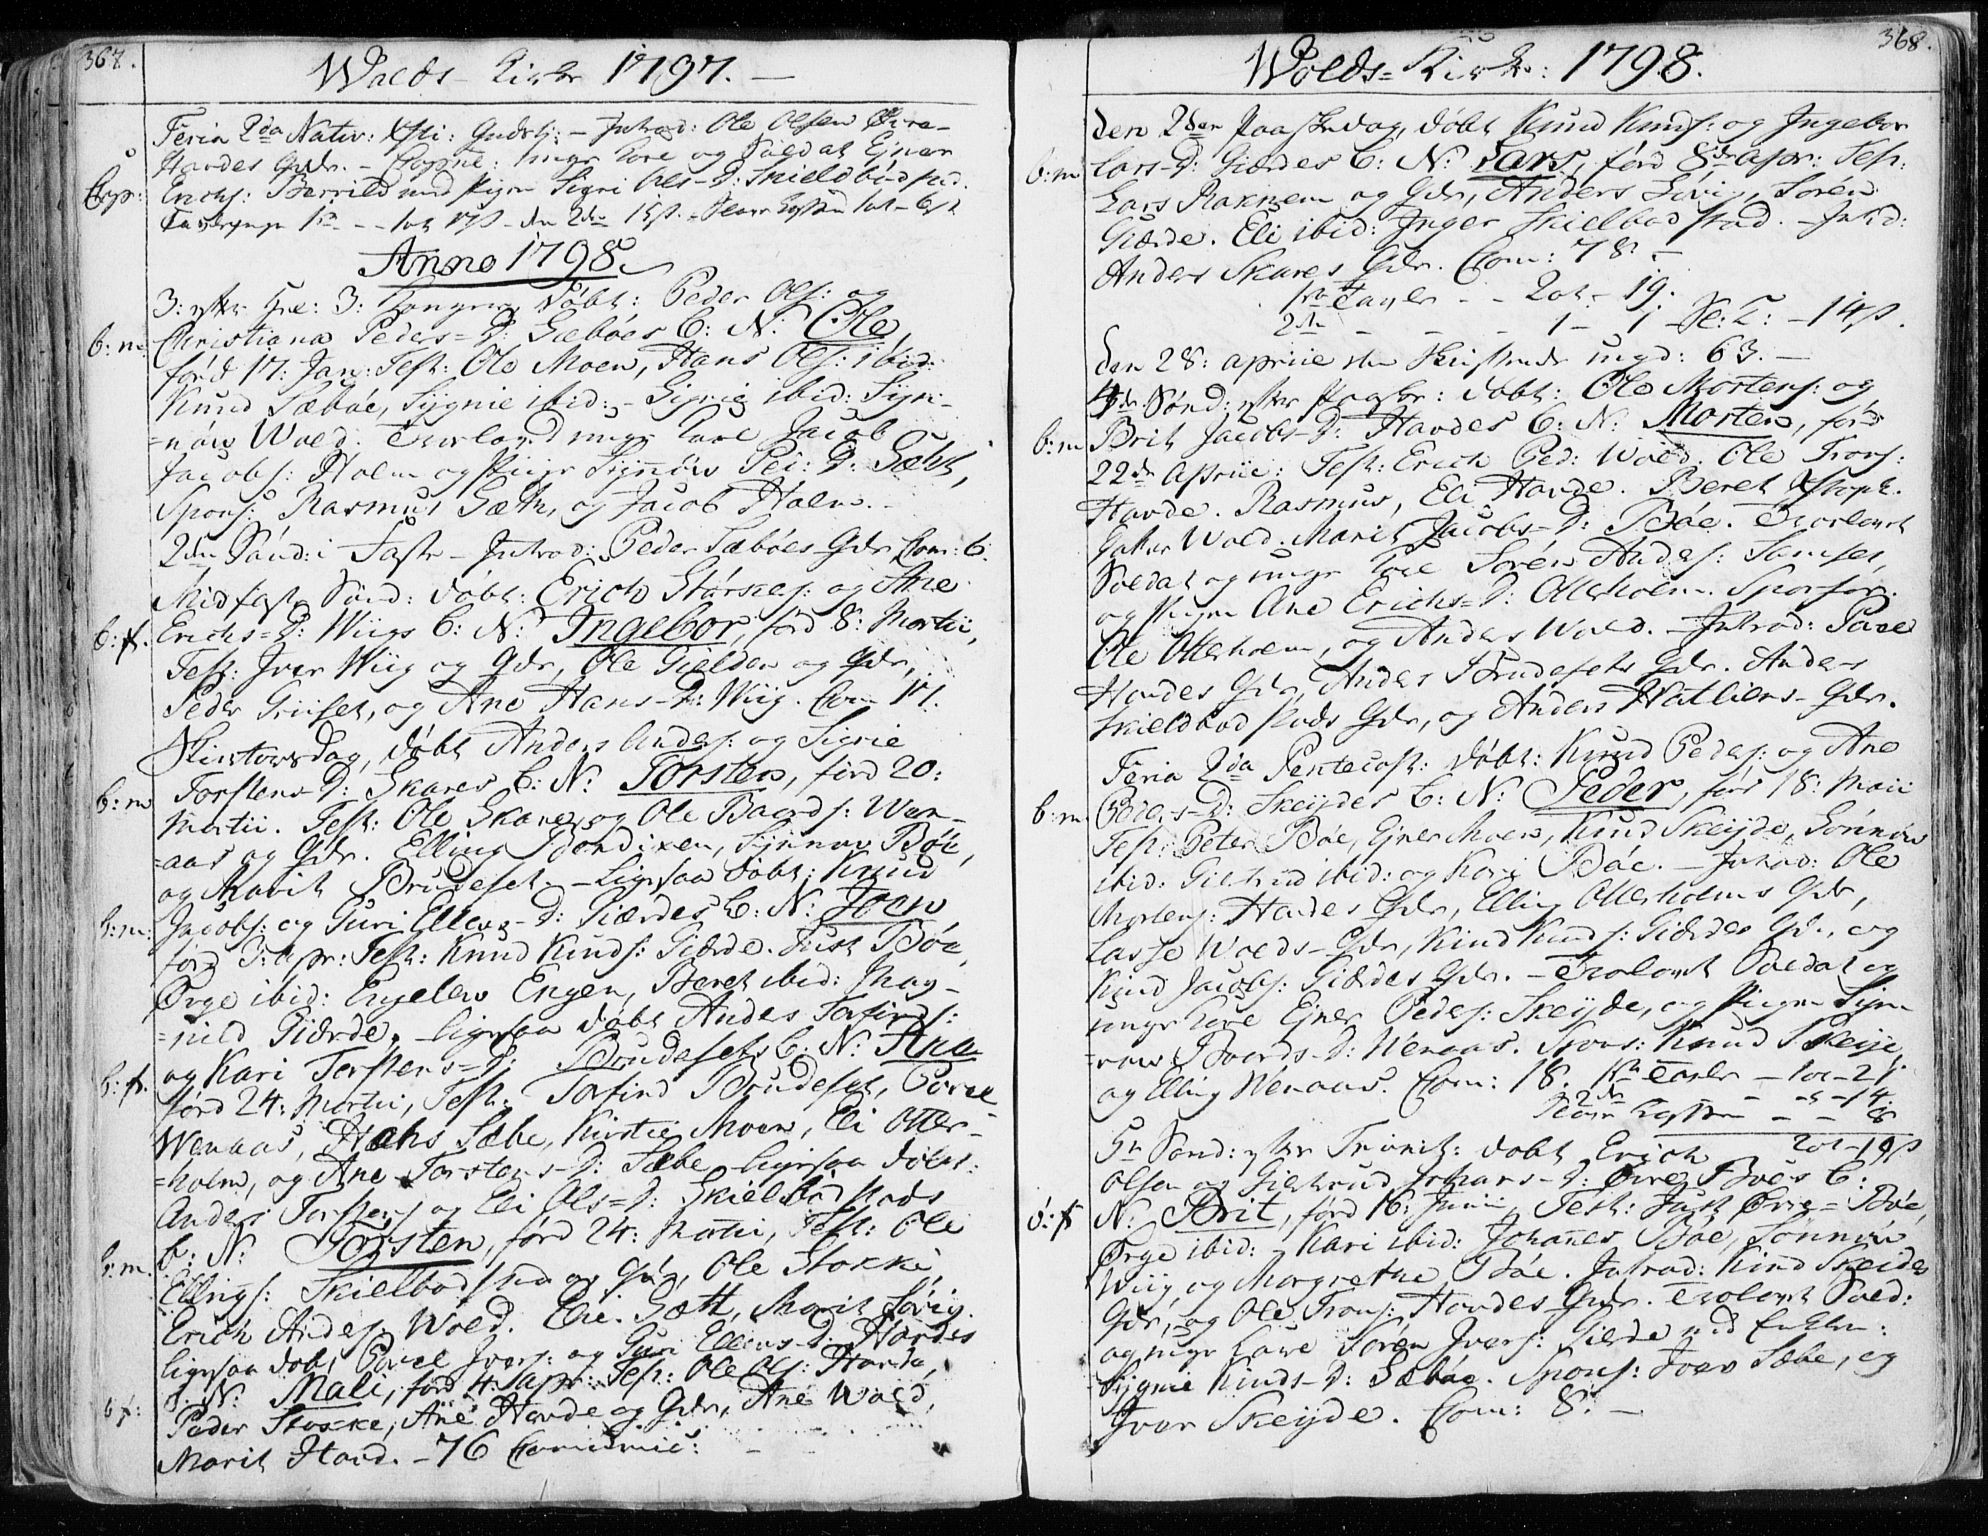 367.
Wolds Kirke 1797. —
Feria 2da Nativ: Xsti: - Introd: Ole Olsen
Havdes Qde. - og Soldat Ejner
Cop: Erichs: Berrild med Pigen Sigri Ols-D: Skieldbodstad.
den 2den
Anno 1798.
3: 3: Konger, døbt: Peder Ols: og
b: m: Christiana Peders-D: Sæbøes b: N: Ole,
fød 17: Jan: Test: Ole Moen, Hans Ols: ibid:
Knud Sæbøe, Sygnie ibid: - Sigrie ibid: Syn-
=nøw Wold. Trolovd ungr Karl Jacob
Jacobs: Holm og Pige Sÿnnøw Pei: D: Sæht,
Spons: Rasmus Sæth, og Jacob Holm. -
2den Sønd: i Faste - Introd: Peder Sæbøes Qde Com: 6.
Midfaste Sønd: døbt: Erich Størkers: og Ane
b: f. Erichs=D: Wiigs b: N: Ingebor, fød 8: Martii,
Test: Iver Wiig og Qde, Ole Gielden og Qde,
Peder Griiset, og Ane Hans-D: Wiig. Com 17.
Skiertorsdag, døbt Anders Anders: og Sigrie
b: m Torstens-D: Skares b: N: Torsten, fød 20:
Martii. Test: Ole Skare, og Ole Baards: Wen-
=aas og Qde. Elling Bendixen, Synnøv Bøe,
og Marit Brudeset. - Ligesaa døbt: Knud
b: m: Jacobs: og Guri Ellens-D: Giærdes b: N: Joen
fød 3: Apr: Test: Knud Knuds: Giærde. Just Bøe,
Ørge ibid: Engelew Engen, Beret ibid: Mag-
=nild Giærde. Ligesaa døbt Anders Torfinds:
og Kari Torstens=D: Brudesets b: N: Ane
b: f. fød 24: Martii, Test: Torfind Brudeset, Povel
Wenaas, Hans Sæbe, Kirstie Moen, Eli Otter-
=holm, og Ane Torstens-D: Sæbe ligesaa døbt:
Anders Torstens og Eli Ols=D: Skieldbodstads
b: m. b: N: Torsten, fød 24: Martii, Test: Ole
Ellings: Skielbodstad og Qde, Ole Stokke
Erich Anders: Wold. Elie Sætt, Marit Søvig.
ligesaa døbt Povel Ivers: og Guri Ellens-D: Havdes
b: f: b: N: Mali, fød 4. Apr: Test: Ole Ols: Havde,
Peder Stokke, Ane Havde og Qde, Ane Wold,
Marit Havd. - 76 Communic:
368.
Wolds= Kirke: 1798.
den 2den Paaskedag, døbt Knud Knuds: og Ingebor
b: m Lars-D: Giærdes b: N: Lars, fød 8de Apr: Test:
Lars Raknem og Qde, Anders Søvig, Søren
Giærde. Eli ibid: Inger Skielbodstad. - Introd:
Anders Skares Qde. Com: 78. -
1ste Tavle - - 2 - 19.
2den - - - 1 - 1 - 14ß.
den 28: Aprilie ungd: 63. -
4de Sønd: efter Paaske: døbt: Ole Mortens: og
b: m Brit Jacobs-D: Havdes b: N: Morten, fød
22de Aprilie: Test: Erich Ped: Wold. Ole Trons:
Havde. Rasmus, Eli Havde. Beret
Wold. Marit Jacobs-D: Bøe. Trolovet
Soldat og ungr Karl Søren Anders: Tomset,
og Pigen Ane Erichs=D: Otterholm. Sponsor:
Ole Otterholm, og Anders Wold. - Introd: Povel
Havdes Qde, Anders Brudesets Qde. Anders
Skieldbodstads Qde, og Anders Hatliens-Qde.
Feria 2da Pentecost: døbt: Knud Peders: og Ane
b: m. Peders-D: Skeijdes b: N: Peder, fød 18: Maii
Test: Peter Bøe, Ejner Moen, Knud Skeijde, Sønnøw
ibid: Giertrud ibid: og Kari Bøe. - Introd: Ole
Mortens: Havdes Qde, Elling Otterholms Qde,
Lasse Wolds-Qde, Knud Knuds: Giærdes Qde, og
Knud Jacobs: Giærdes Qde. - Trolovet Soldat og
ungr Karl Ejner Peders: Skeijde, og Pigen Syn-
=now Baards-D: Wenaas. Spons: Knud Skeije,
og Elling Wenaas. Com: 18. 1ste Tavle - 1 - 21.
2den - - - 14.
- - 8
5te Sønd: efter Trinit: døbt Erich 2 - 19ß
Olsen og Giertrud Johans-D: Øvre Bøes b:
b: f N: Brit, fød 16: Junii, Test: Just Øvre=Bøe,
Ørge ibid: Kari ibid: Johannes Bøe, Sønnøw
Wiig, og Margrethe Bøe. Introd: Knud Skeides
Qde, og Ole Trons: Havdes Qde. Trolovet Sold:
og ungr Karl Søren Ivers: Gielde med
Sygnie Knuds-D: Sæbøe. Spons: Iver Sæbe, og
Iver Skeijde. Com: 8. -